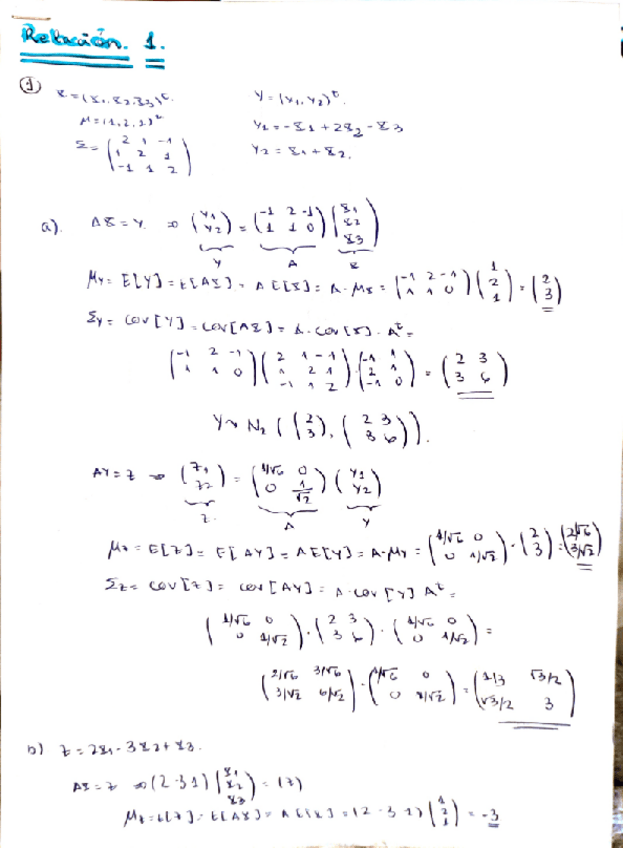 Relación. 1.
1) X=(X1,X2,X3)^t. Y=(Y1,Y2)^t.
μ=(1,2,1)^t Y1=-X1+2X2-X3
Σ=(2 1 -1; 1 2 1; -1 1 2) Y2=X1+X2.
a). AX=Y. ⇒ (Y1; Y2) = (-1 2 -1; 1 1 0)(X1; X2; X3)
Y A X
μY=E[Y]=E[AX]=A E[X]=A·μX=(-1 2 -1; 1 1 0)(1; 2; 1)=(2; 3)
ΣY=COV[Y]=COV[AX]=A·COV[X]·A^t=
(-1 2 -1; 1 1 0)(2 1 -1; 1 2 1; -1 1 2)·(-1 1; 2 1; -1 0)=(2 3; 3 6)
Y~N2((2; 3),(2 3; 3 6)).
AY=Z ⇒ (Z1; Z2)=(1/√6 0; 0 1/√2)(Y1; Y2)
Z. A Y
μZ=E[Z]=E[AY]=AE[Y]=A·μY=(1/√6 0; 0 1/√2)·(2; 3)=(2/√6; 3/√2)
ΣZ=COV[Z]=COV[AY]=A·COV[Y] A^t=
(1/√6 0; 0 1/√2)·(2 3; 3 6)·(1/√6 0; 0 1/√2)=
(2/√6 3/√6; 3/√2 6/√2)·(1/√6 0; 0 1/√2)=(1/3 √3/2; √3/2 3)
b) Z=2X1-3X2+X3.
AX=Z ⇒(2 -3 1)(X1; X2; X3)=(Z)
μZ=E[Z]=E[AX]=A E[X]=(2 -3 1)(1; 2; 1)=-3